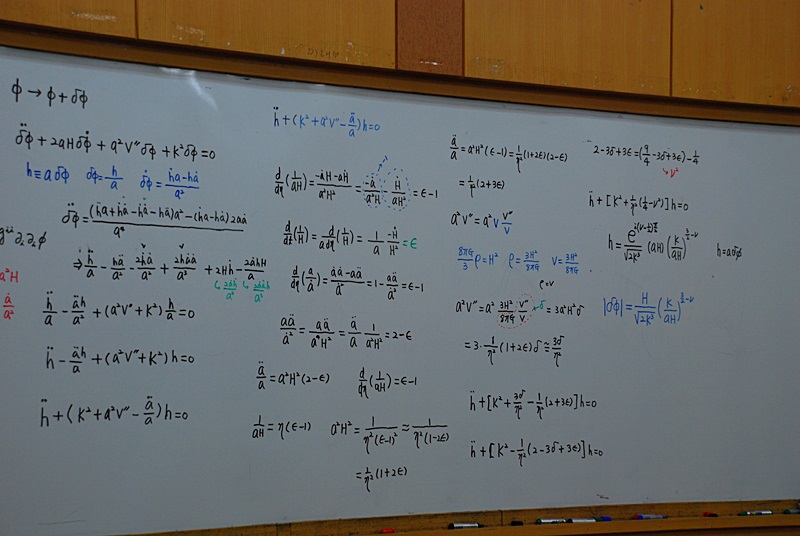 ϕ → ϕ + δϕ
δϕ̈ + 2aHδϕ̇ + a²V″δϕ + k²δϕ = 0
h ≡ aδϕ δϕ = h/a δϕ̇ = (ḣa − hȧ)/a²
δϕ̈ = ((ḧa + ḣȧ − ḣȧ − hä)a² − (ḣa − hȧ)2aȧ)/a⁴
g^{μν}∂ᵥ∂ᵥϕ
⇒ ḧ/a − hä/a² − 2ḣȧ/a² + 2hȧȧ/a³ + 2Hḣ − 2ȧhH/a
a²H
ȧ/a²
ḧ/a − äh/a² + (a²V″ + k²)h/a = 0
ḧ − äh/a + (a²V″ + k²)h = 0
ḧ + (k² + a²V″ − ä/a)h = 0
ḧ + (k² + a²V″ − ä/a)h = 0
d/dη (1/aH) = (−ȧH − aḢ)/a²H² = −ȧ/a²H − Ḣ/aH² = ε − 1
d/dt (1/H) = d/adη (1/H) = 1/a −Ḣ/H² = ε
d/dη (a/ȧ) = (ȧȧ − aä)/ȧ² = 1 − aä/ȧ² = ε − 1
aä/ȧ² = aä/a⁴H² = ä/a 1/a²H² = 2 − ε
ä/a = a²H²(2 − ε) d/dη (1/aH) = ε − 1
1/aH = η(ε − 1) a²H² = 1/η²(ε − 1)² ≈ 1/η²(1 − 2ε)
= 1/η² (1 + 2ε)
ä/a = a²H²(ε − 1) = 1/η² (1 + 2ε)(2 − ε)
= 1/η² (2 + 3ε)
a²V″ = a²V V″/V
8πG/3 ρ = H² ρ = 3H²/8πG V = 3H²/8πG
ρ ≈ V
a²V″ = a² 3H²/8πG V″/V → δ = 3a²H²δ
= 3 · 1/η² (1 + 2ε)δ ≈ 3δ/η²
ḧ + [k² + 3δ/η² − 1/η² (2 + 3ε)]h = 0
ḧ + [k² − 1/η² (2 − 3δ + 3ε)]h = 0
2 − 3δ + 3ε = (9/4 − 3δ + 3ε) − 1/4
→ ν²
ḧ + [k² + 1/η² (1/4 − ν²)]h = 0
h = e^{i(ν − ½)π/2}/√2k³ (aH) (k/aH)^{3/2 − ν} h = aδϕ
|δϕ| = H/√2k³ (k/aH)^{3/2 − ν}